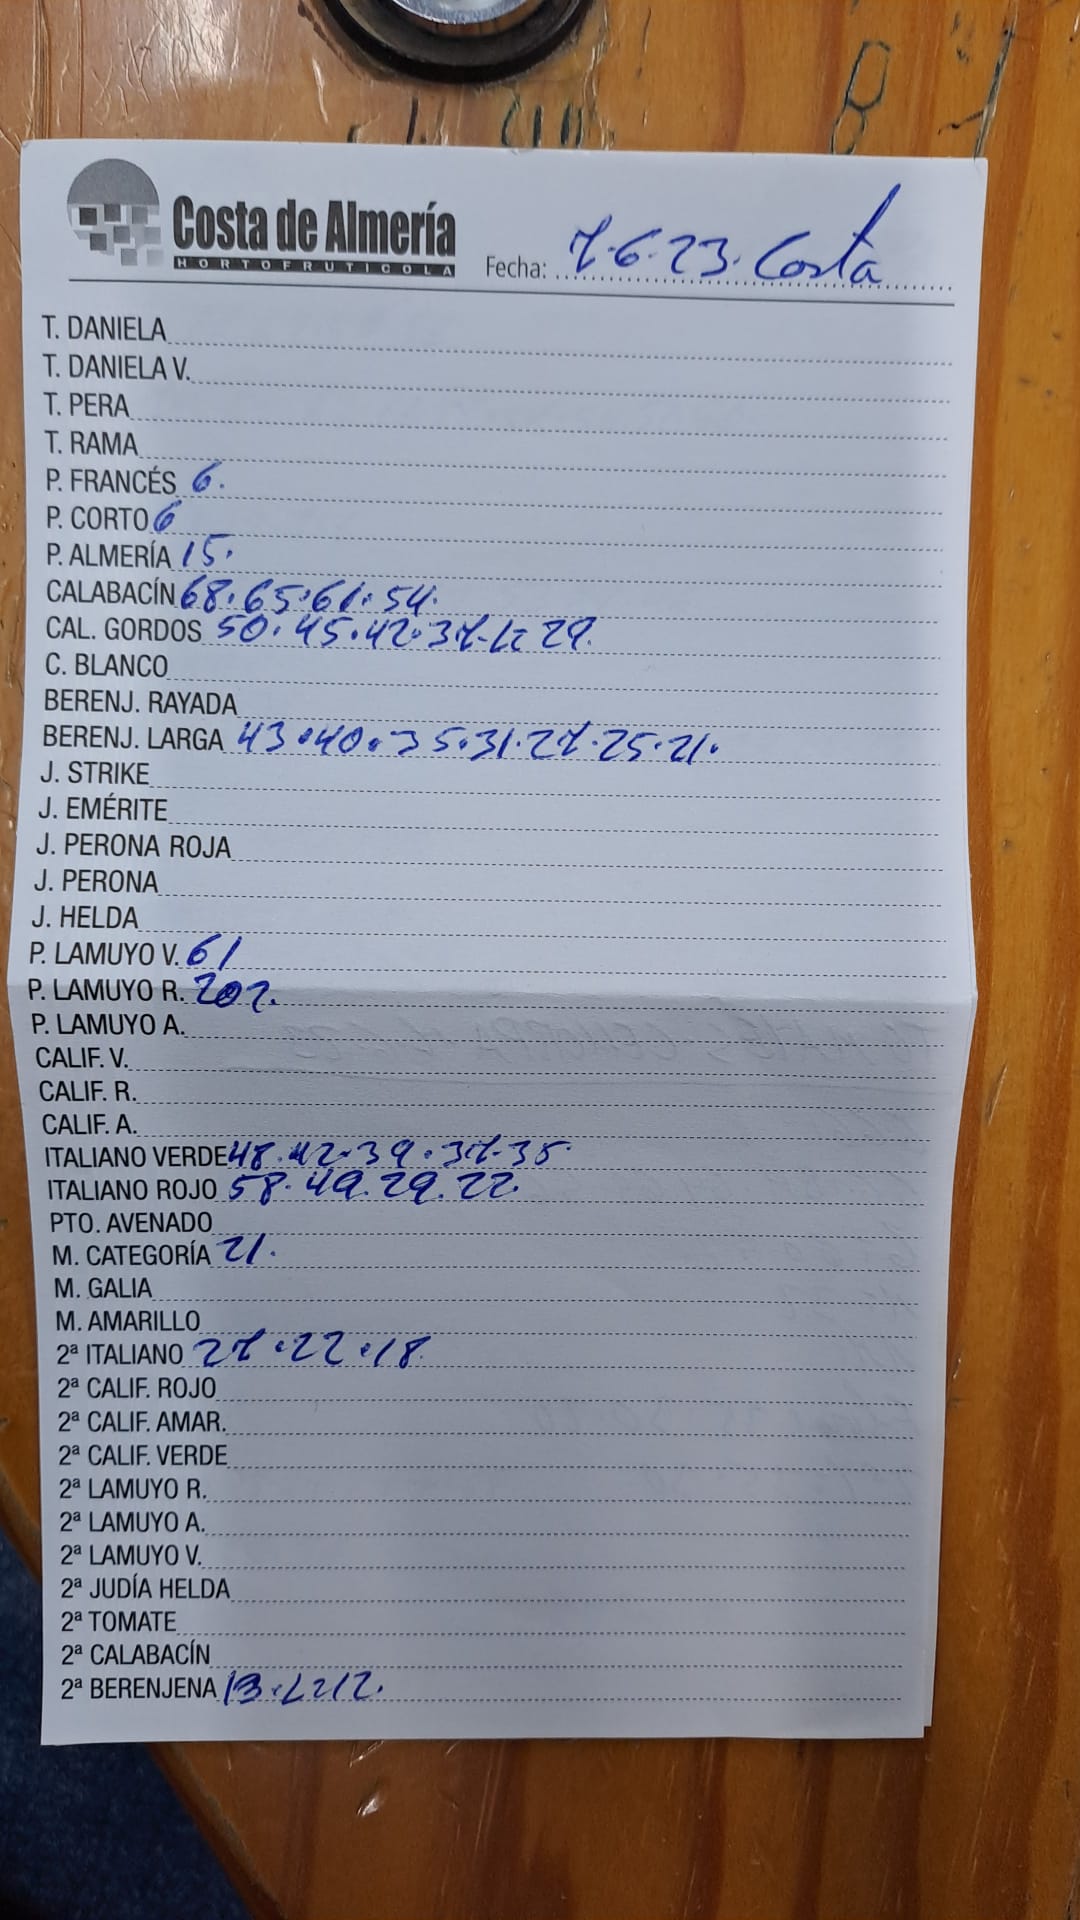 Costa de Almería
HORTOFRUTICOLA
Fecha: 7.6.23. Costa
T. DANIELA
T. DANIELA V.
T. PERA
T. RAMA
P. FRANCÉS 6.
P. CORTO 6
P. ALMERÍA 15.
CALABACÍN 68.65.61.54.
CAL. GORDOS 50.45.42.37- 29.
C. BLANCO
BERENJ. RAYADA
BERENJ. LARGA 43.40.35.31.27.25.21.
J. STRIKE
J. EMÉRITE
J. PERONA ROJA
J. PERONA
J. HELDA
P. LAMUYO V. 61
P. LAMUYO R.
P. LAMUYO A.
CALIF. V.
CALIF. R.
CALIF. A.
ITALIANO VERDE 48.42.39.37.35.
ITALIANO ROJO 58.49.29.22.
PTO. AVENADO
M. CATEGORÍA 21.
M. GALIA
M. AMARILLO
2ª ITALIANO 27.22.18
2ª CALIF. ROJO
2ª CALIF. AMAR.
2ª CALIF. VERDE
2ª LAMUYO R.
2ª LAMUYO A.
2ª LAMUYO V.
2ª JUDÍA HELDA
2ª TOMATE
2ª CALABACÍN
2ª BERENJENA 13. 12.